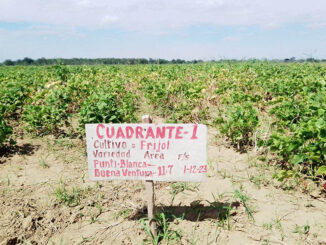 CUADRANTE-1
Cultivo = Frijol
Variedad Area r/s
Punti-Blanca
Buena Ventura 11·7 1-12-23